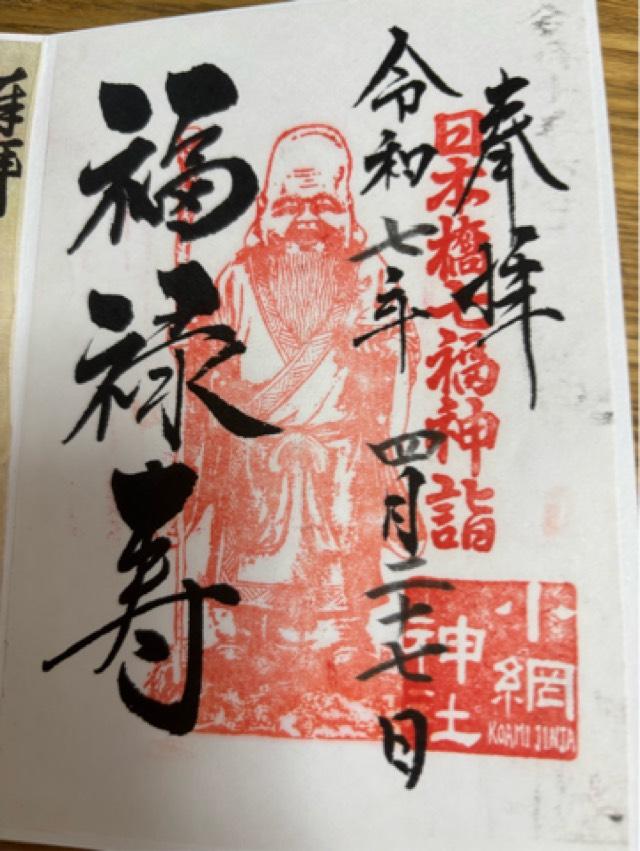 奉拝
日本橋七福神詣
小網
神社
KOAMI JINJA
令和七年 四月二十七日
福禄寿